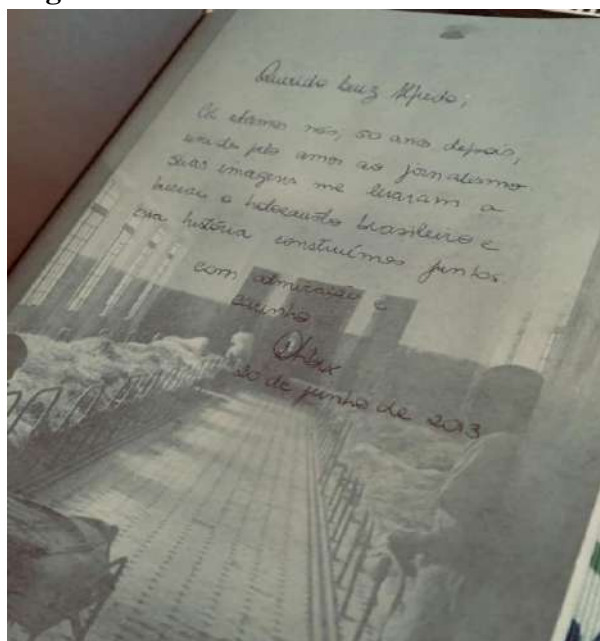 Querido Luiz Alfredo,
Cá estamos nós, 50 anos depois,
unidos pelo amor ao jornalismo
suas imagens me levaram a
buscar o holocausto brasileiro e
essa história construímos juntos.
com admiração e
carinho
20 de junho de 2013